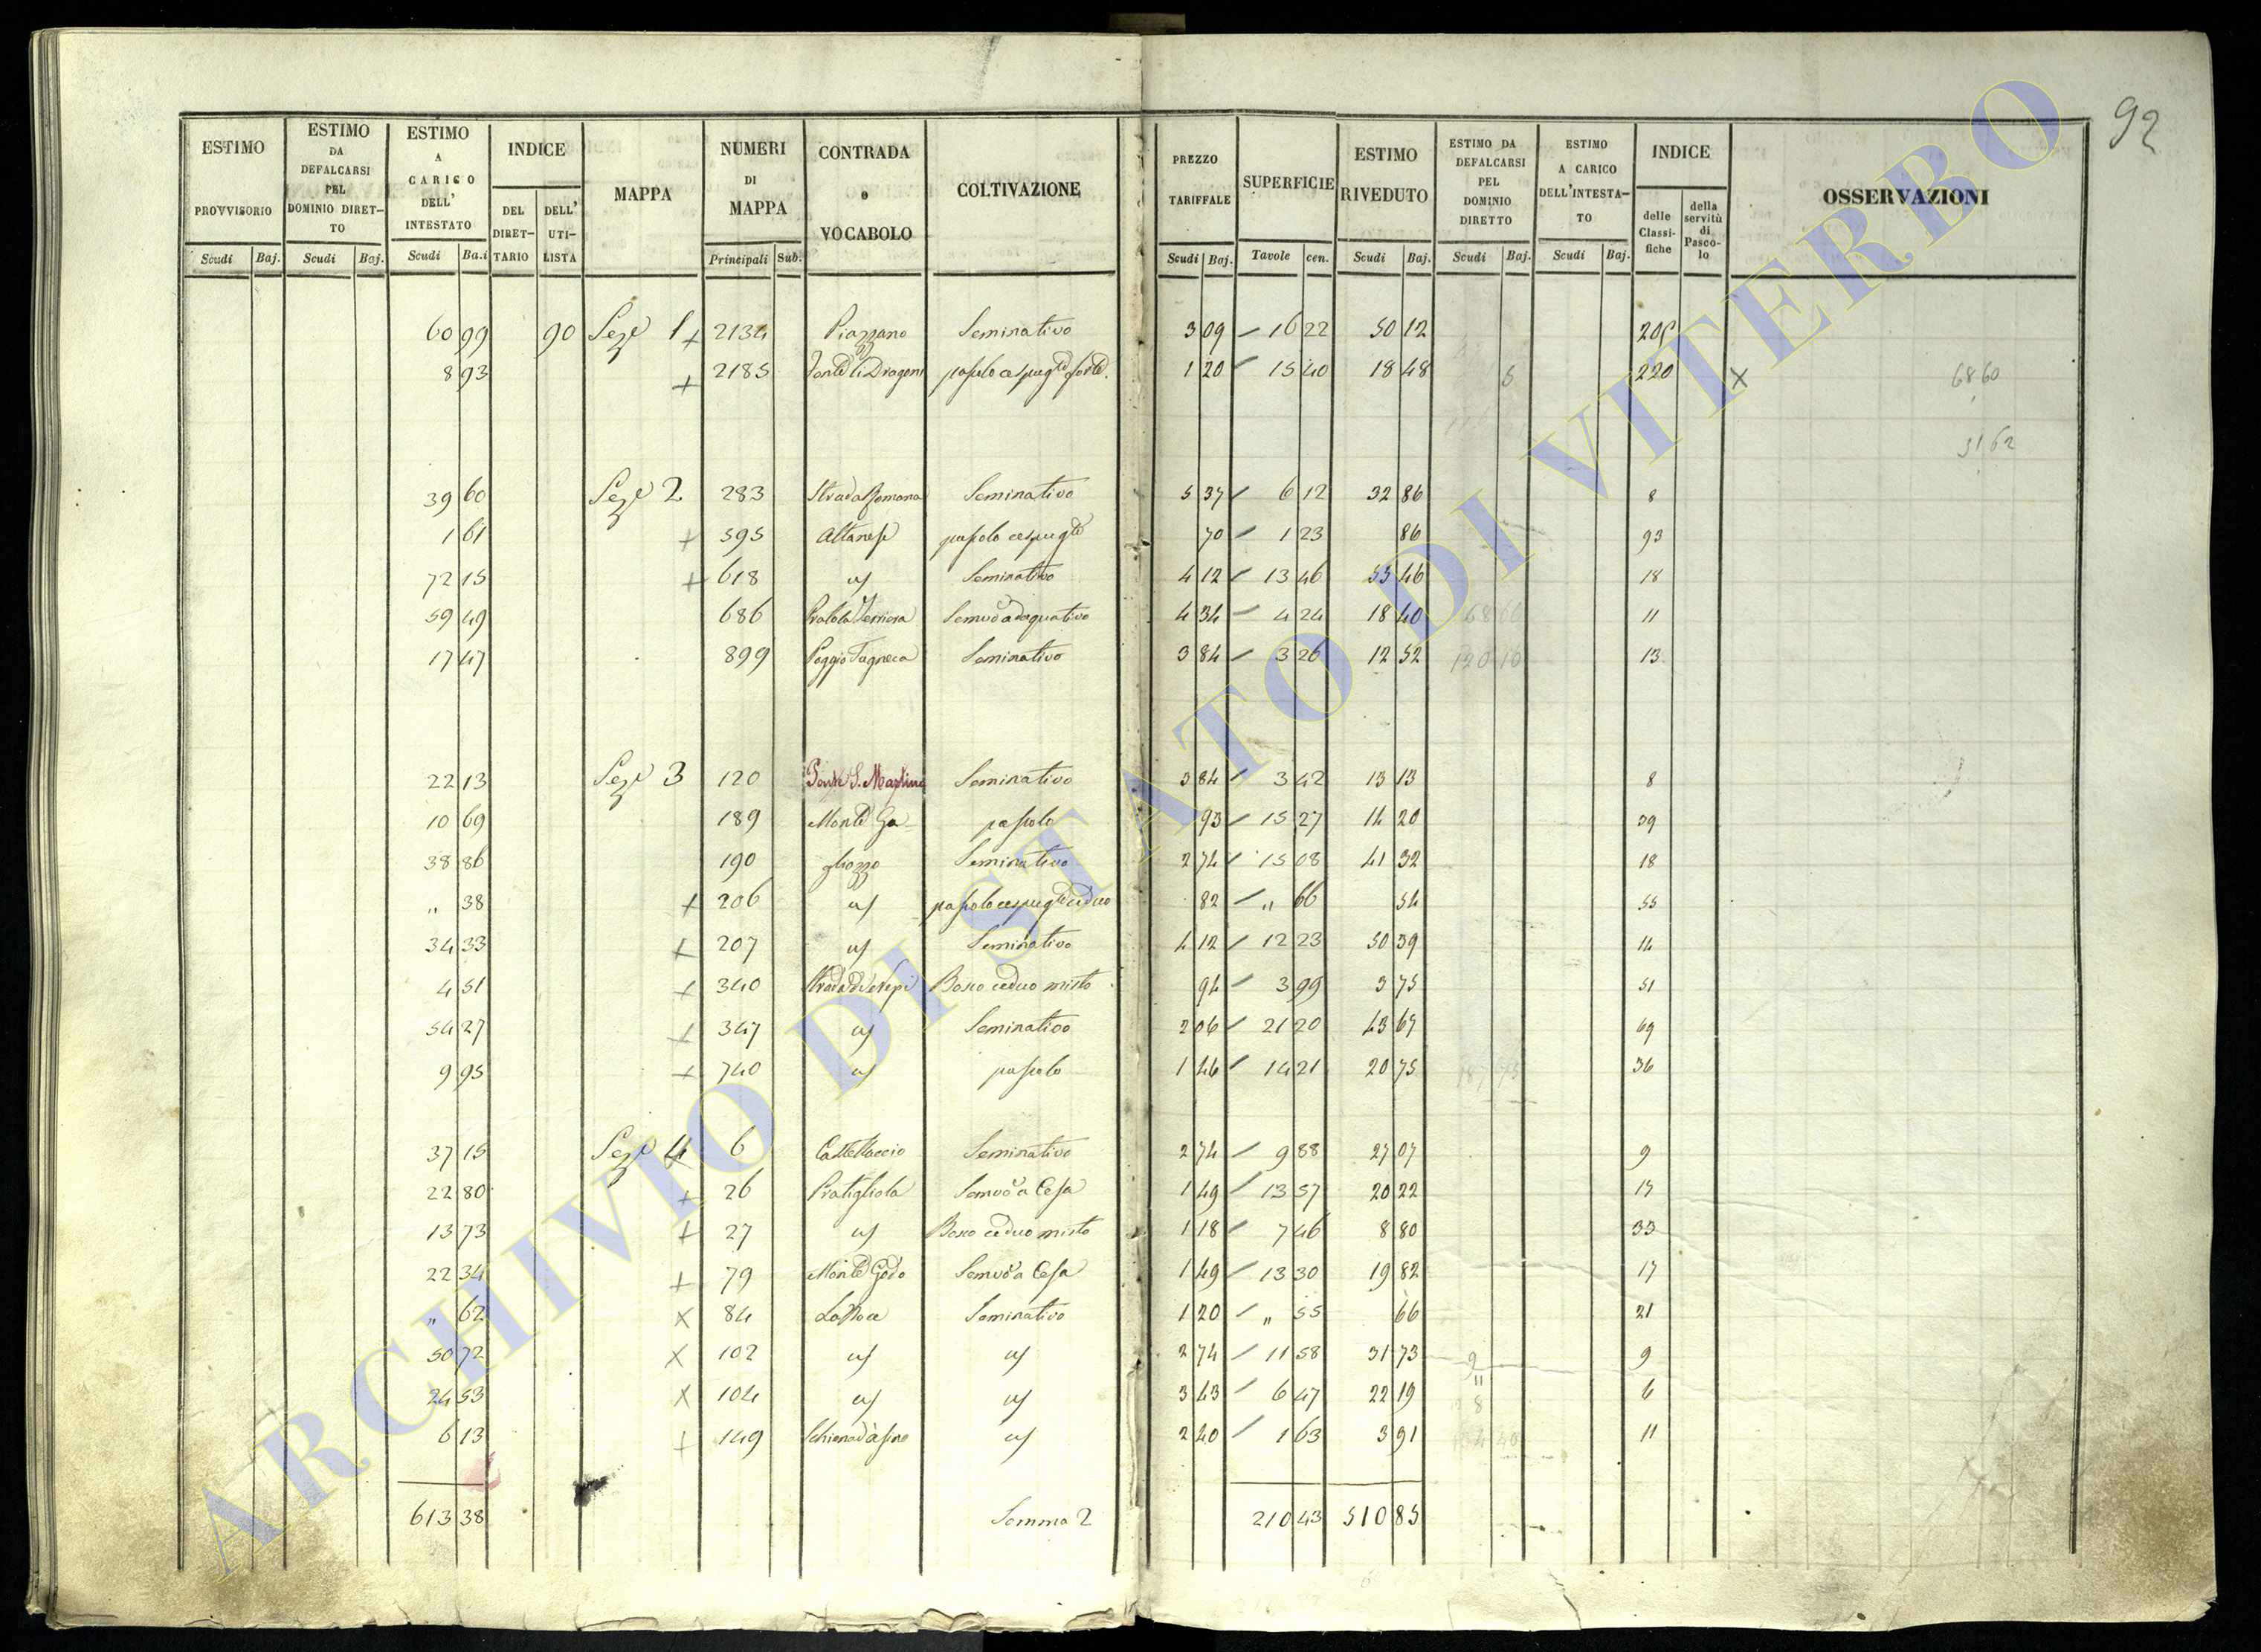 92
ESTIMO PROVVISORIO Scudi Baj.
ESTIMO DA DEFALCARSI PEL DOMINIO DIRET-TO Scudi Baj.
ESTIMO A CARICO DELL' INTESTATO Scudi Ba.i
INDICE DEL DIRET-TARIO DELL' UTI-LISTA
MAPPA
NUMERI DI MAPPA Principali Sub.
CONTRADA o VOCABOLO
COLTIVAZIONE
PREZZO TARIFFALE Scudi Baj.
SUPERFICIE Tavole cen.
ESTIMO RIVEDUTO Scudi Baj.
ESTIMO DA DEFALCARSI PEL DOMINIO DIRETTO Scudi Baj.
ESTIMO A CARICO DELL'INTESTA-TO Scudi Baj.
INDICE delle Classi-fiche della servitù di Pasco-lo
OSSERVAZIONI
60 99 90 Sez.e 1 + 2134 Piazzano Seminativo 3 09 – 16 22 50 12
8 93 + 2185 pascolo cespugl.to forte 1 20 – 15 40 18 48 5 220 X 68 60
31 62
39 60 Sez.e 2 283 Strada Romana Seminativo 5 37 – 6 12 32 86 8
1 61 + 595 Altanese pascolo cespugl.to 70 – 1 23 86 93
72 15 + 618 us Seminativo 4 12 – 13 46 55 46 18
59 49 686 4 34 – 4 24 18 40 11
17 47 899 Poggio Seminativo 3 84 – 3 26 12 52 120 10 13
22 13 Sez.e 3 120 Ponte S. Martino Seminativo 3 84 – 3 42 13 13 8
10 69 189 Monte Ga- pascolo 93 – 15 27 14 20 39
38 86 190 gliozzo Seminativo 2 74 – 15 08 41 32 18
" 38 + 206 us pascolo cespugl.to ceduo 82 – " 66 54 55
34 33 + 207 us Seminativo 4 12 – 12 23 50 39 14
4 51 + 340 Strada di Nepi Bosco ceduo misto 94 – 3 99 3 75 51
54 27 + 347 us Seminativo 2 06 – 21 20 43 67 69
9 95 + 740 us pascolo 1 46 – 14 21 20 75 36
37 15 Sez.e 4 6 Castellaccio Seminativo 2 74 – 9 88 27 07 9
22 80 + 26 Pratigliola Semvo a Cesa 1 49 – 13 57 20 22 17
13 73 + 27 us Bosco ceduo misto 1 18 – 7 46 8 80 33
22 34 + 79 Monte Godo Semvo a Cesa 1 49 – 13 30 19 82 17
" 62 X 84 La Noce Seminativo 1 20 – " 55 66 21
50 72 X 102 us us 2 74 – 11 58 31 73 9
24 53 X 104 us us 3 43 – 6 47 22 19 8 6
6 13 + 149 Schiena d'asino us 2 40 – 1 63 3 91 11
613 38 Somma 2 210 43 510 85
ARCHIVIO DI STATO DI VITERBO